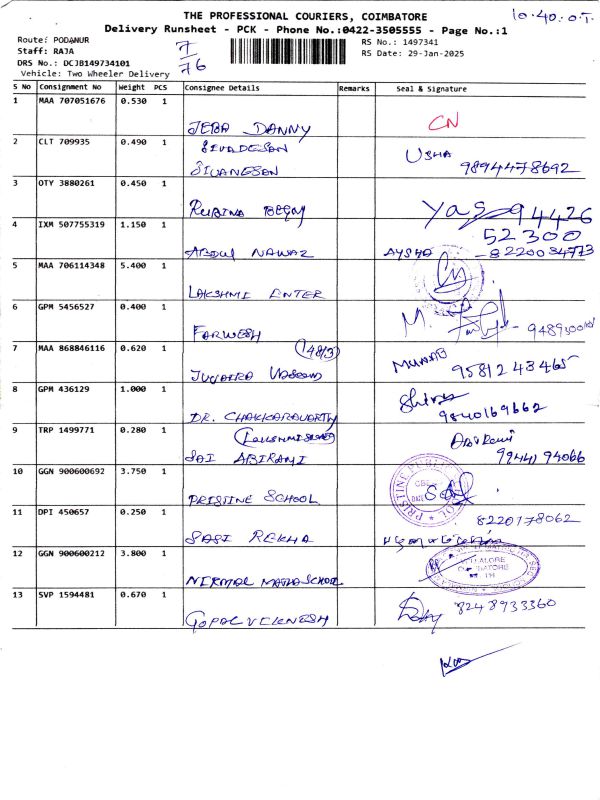 THE PROFESSIONAL COURIERS, COIMBATORE
10.40.O.T.
Delivery Runsheet - PCK - Phone No.:0422-3505555 - Page No.:1
Route: PODANUR
Staff: RAJA
DRS No.: DCJB149734101
Vehicle: Two Wheeler Delivery
7
76
RS No.: 1497341
RS Date: 29-Jan-2025
S No Consignment No Weight PCS Consignee Details Remarks Seal & Signature
1 MAA 707051676 0.530 1 JEBA DANNY CN
2 CLT 709935 0.490 1 SIVADESAN
SIVANESAN USHA
9894478692
3 OTY 3880261 0.450 1 RUBINA BEGM 94426
52300
4 IXM 507755319 1.150 1 ABDUL NAWAZ AYSHA - 8220034773
5 MAA 706114348 5.400 1 LAKSHMI ENTER
6 GPM 5456527 0.400 1 FARWESH
7 MAA 868846116 0.620 1 (148/3)
9581243465
8 GPM 436129 1.000 1 DR. CHAKKARAVARTHY
9840169662
9 TRP 1499771 0.280 1 SAI ABIRAMI Abirami
9944194066
10 GGN 900600692 3.750 1 PRISTINE SCHOOL
PRISTINE PUBLIC
DATE
11 DPI 450657 0.250 1 SASI REKHA 8220178062
12 GGN 900600212 3.800 1 NIRMAL MATHA SCHOOL
13 SVP 1594481 0.670 1 GOPAL VEKNESH 8248933360